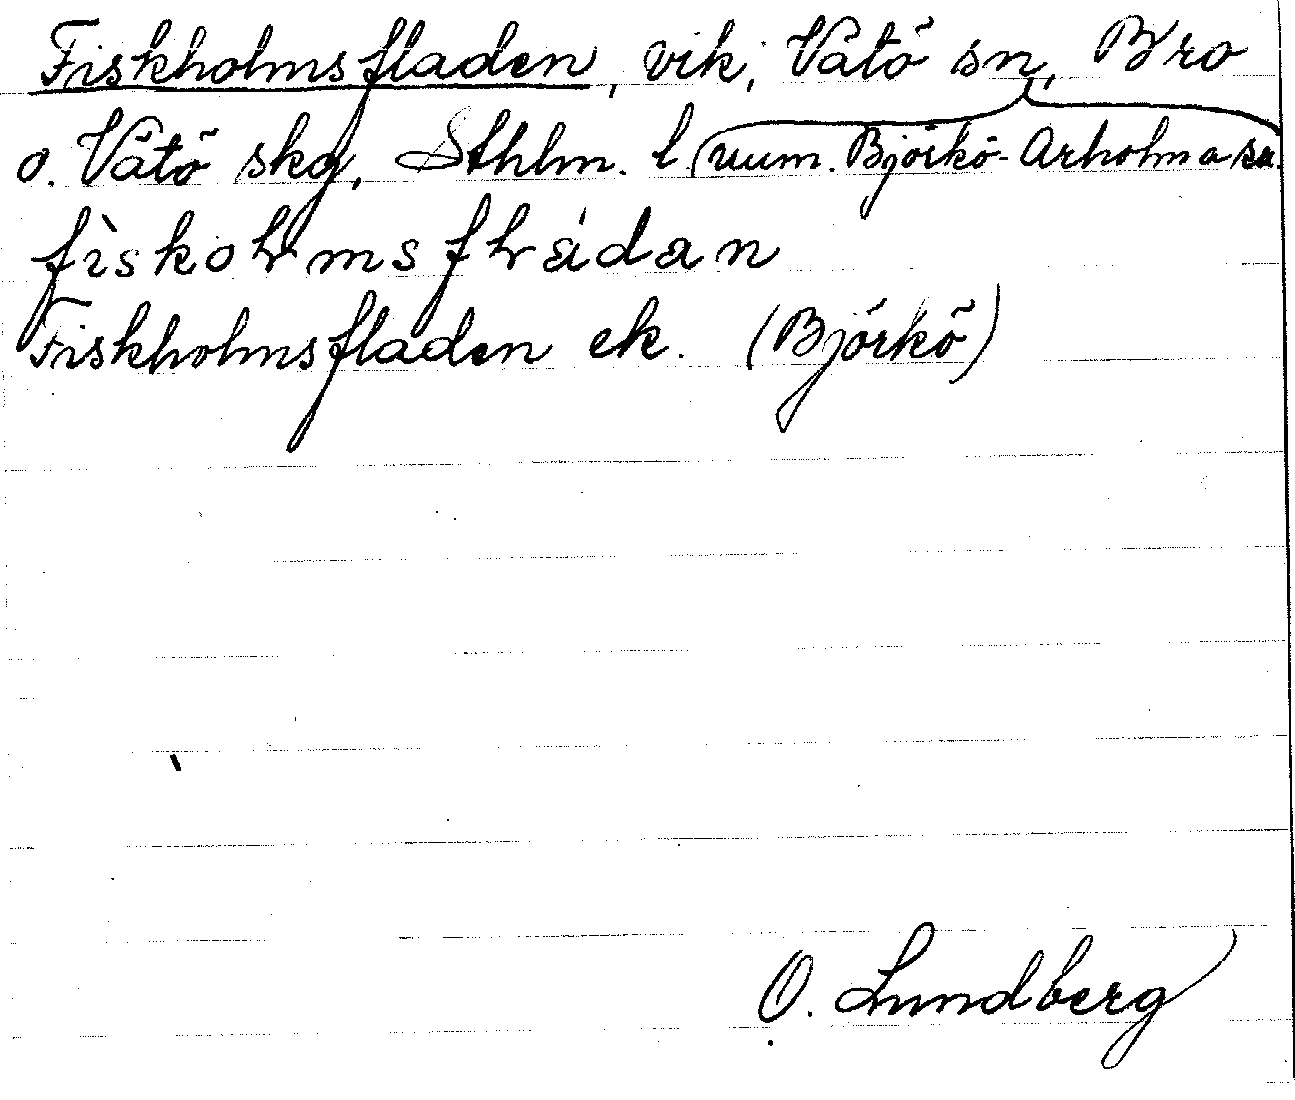 Fiskholmsfladen, vik, Vätö sn, Bro
o. Vätö skg, Sthlm. l (num. Björkö-Arholma sn.
fìskoḷmsfḷádan
Fiskholmsfladen ek. (Björkö)
O. Lundberg